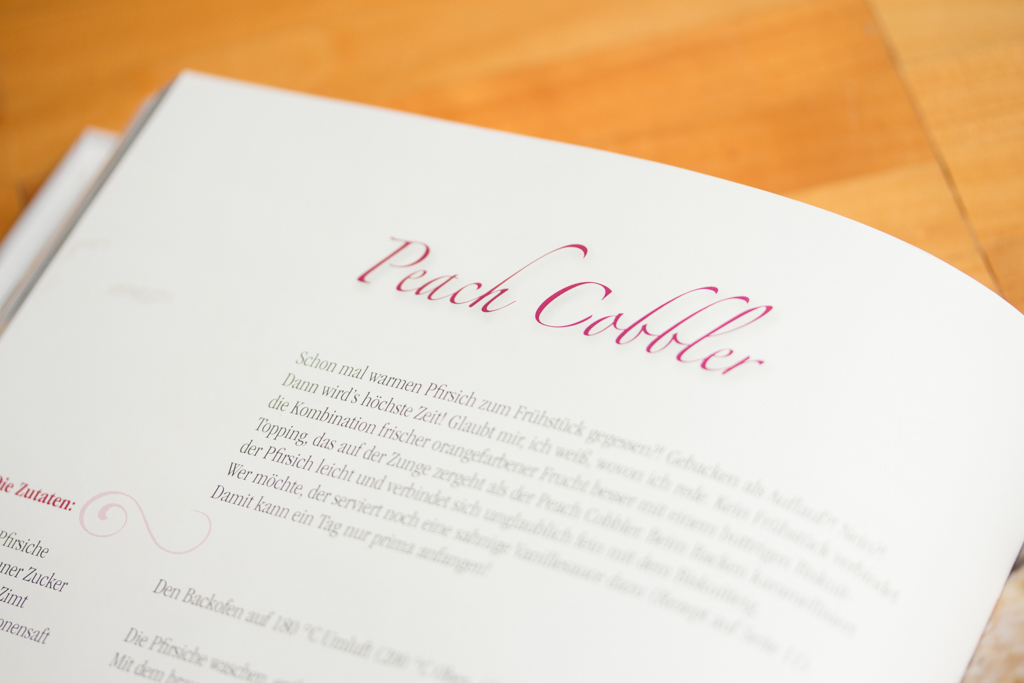 Peach Cobbler
Schon mal warmen Pfirsich zum Frühstück gegessen?! Gebacken als Auflauf?! Nein?!
Dann wird's höchste Zeit! Glaubt mir, ich weiß, wovon ich rede. Kein Frühstück verbindet
die Kombination frischer orangefarbener Frucht besser mit einem buttrigen Biskuit
Topping, das auf der Zunge zergeht als der Peach Cobbler. Beim Backen karamellisiert
der Pfirsich leicht und verbindet sich unglaublich fein mit dem Biskuitteig.
Wer möchte, der serviert noch eine sahnige Vanillesauce dazu.
Damit kann ein Tag nur prima anfangen!
Die Zutaten:
Pfirsiche
Zucker
Zimt
Den Backofen auf 180 °C Umluft (200 °C
Die Pfirsiche waschen
Mit dem